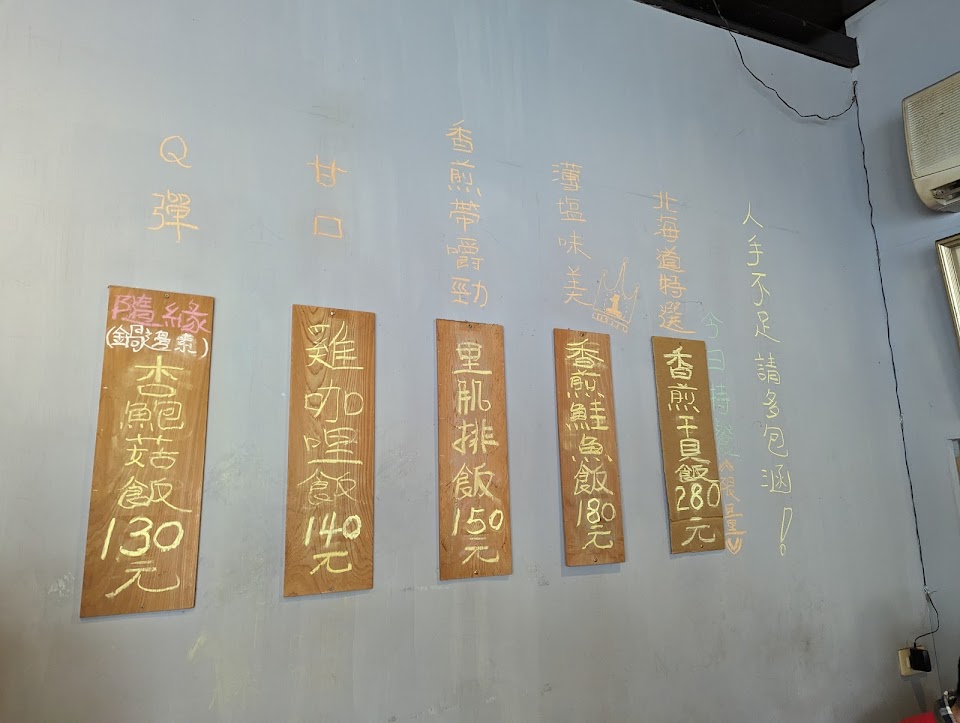 Q彈
隨緣
(鍋邊素)
杏鮑菇飯
130元
甘口
雞咖哩飯
140元
香煎帶嚼勁
里肌排飯
150元
薄塩味美
香煎鮭魚飯
180元
北海道特選
香煎干貝飯
280元
今日特餐
限量
人手不足請多包涵!